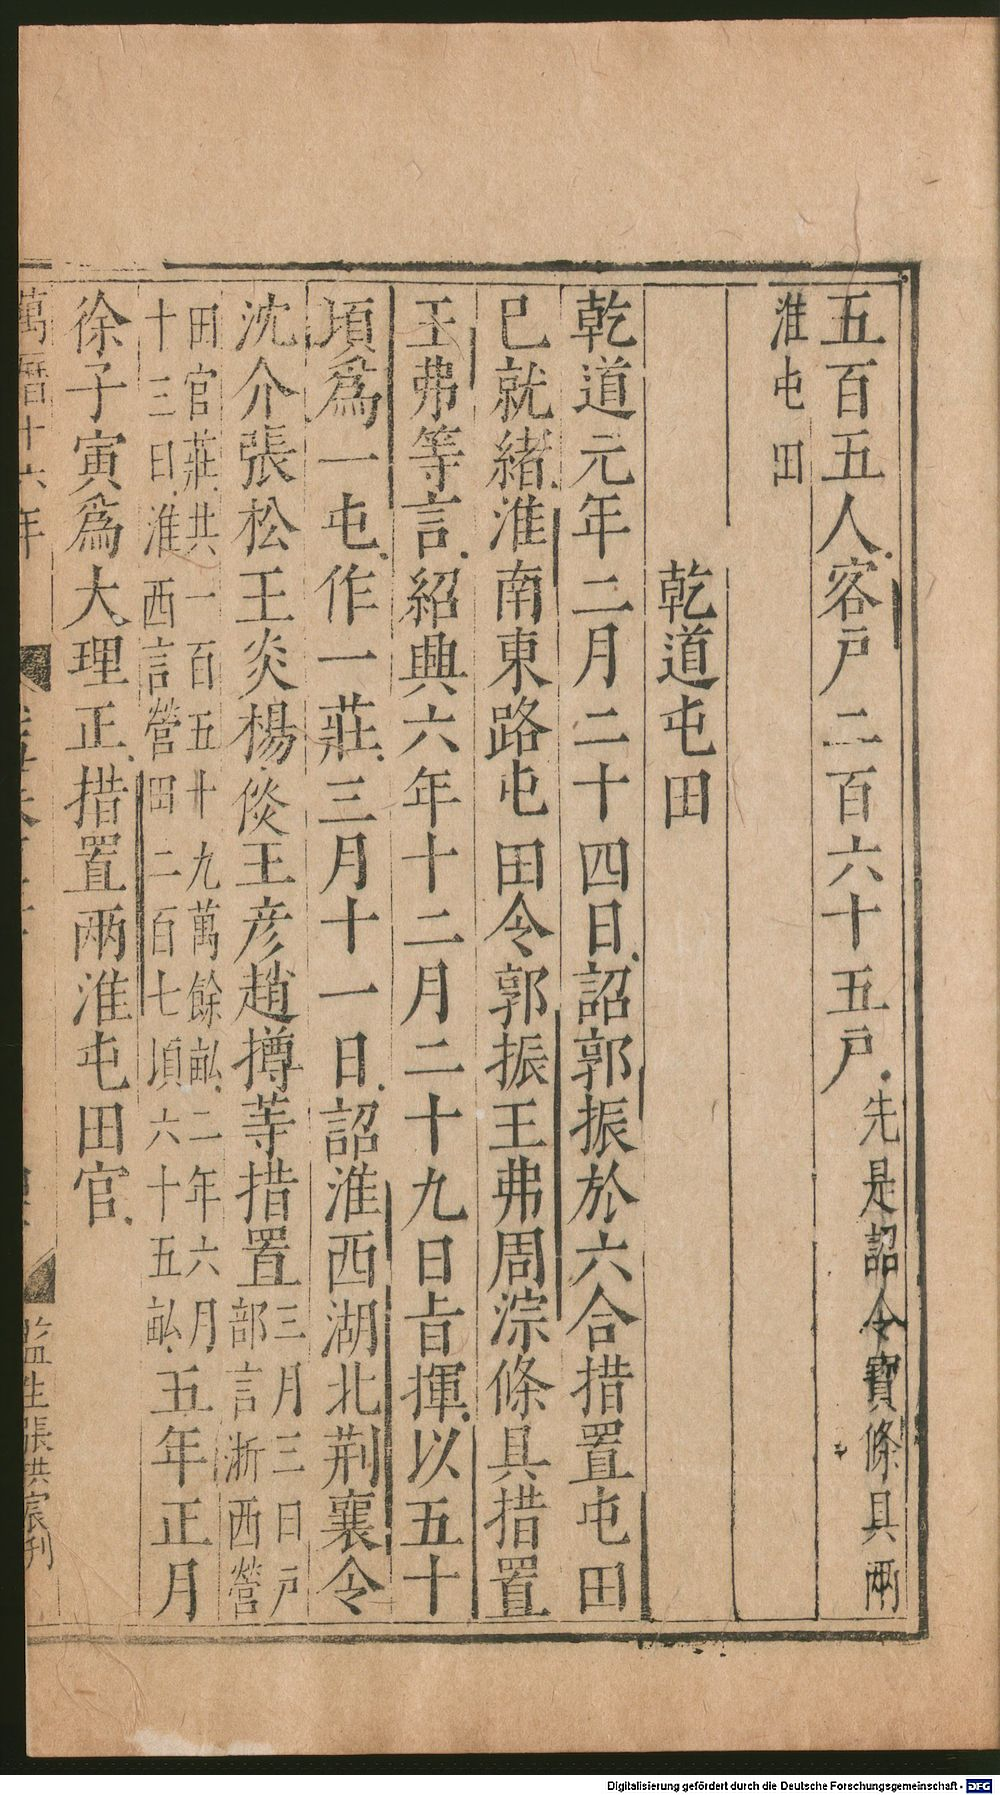 五百五人客戶二百六十五戶先是詔令寶條具兩
淮屯田
乾道屯田
乾道元年二月二十四日詔郭振於六合措置屯田
已就緒淮南東路屯田令郭振王弗周淙條具措置
王弗等言紹興六年十二月二十九日旨揮以五十
頃爲一屯作一莊三月十一日詔淮西湖北荆襄令
沈介張松王炎楊倓王彥趙撙等措置三月三日戶
部言浙西營
田官莊共一百五十九萬餘畝二年六月
十三日淮西言營田二百七頃六十五畝五年正月
徐子寅爲大理正措置兩淮屯田官
萬曆十六年
監生張拱宸刊
Digitalisierung gefördert durch die Deutsche Forschungsgemeinschaft - DFG